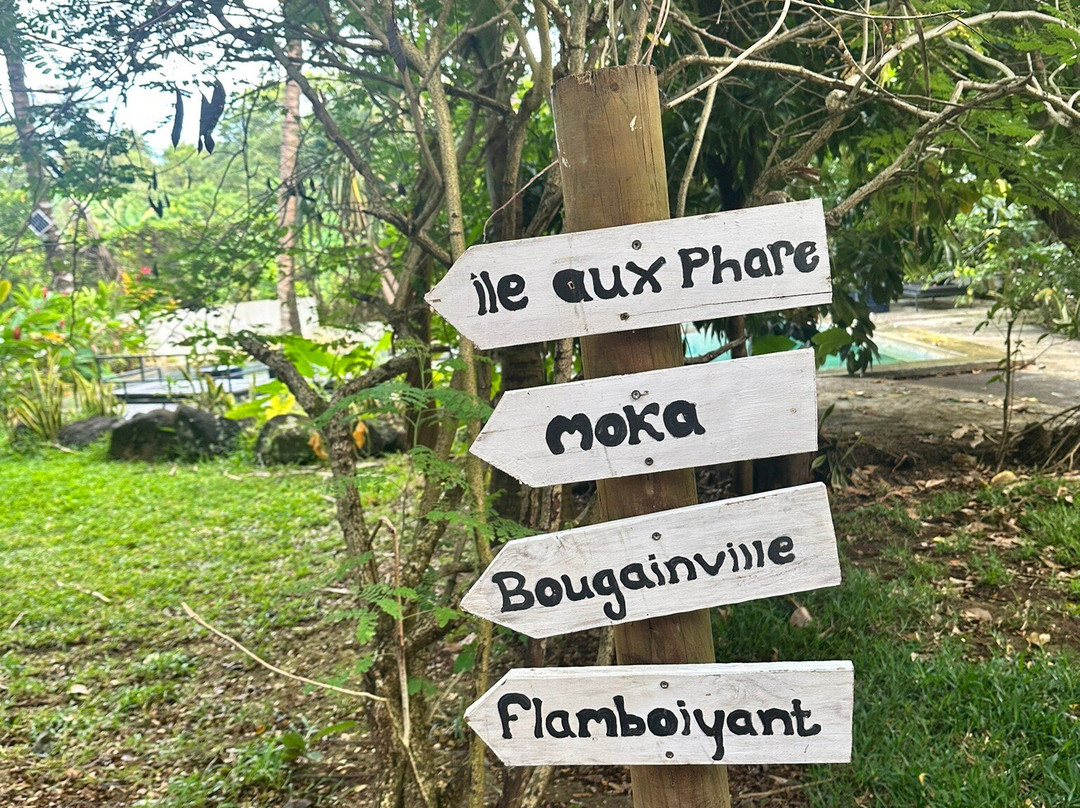 île aux Phare
moka
Bougainville
Flamboiyant